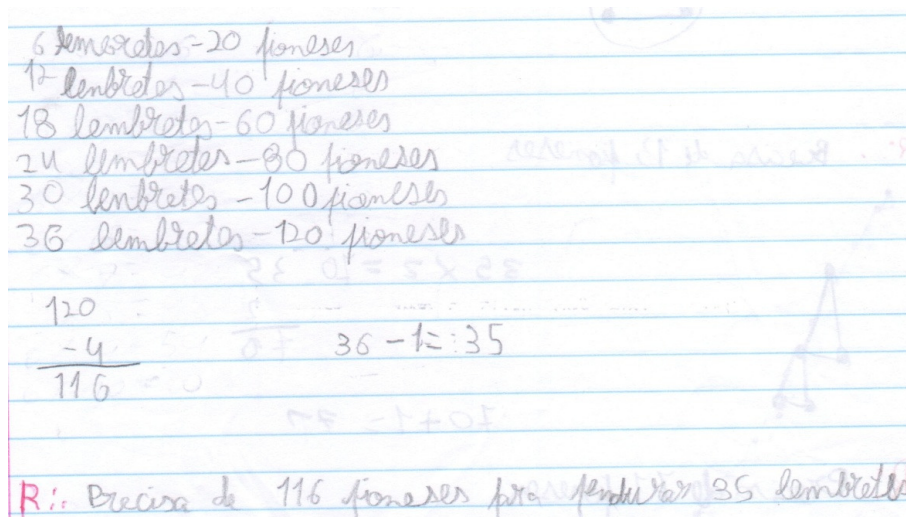 6 lemoretes-20 pioneses
12 lenbretes-40 pioneses
18 lembretes-60 pioneses
24 lembretes-80 pioneses
30 lenbretes-100 pioneses
36 lembretes-120 pioneses
120
-4
116
36-1=:35
R:. Precisa de 116 pioneses pra pendurar 35 lembretes